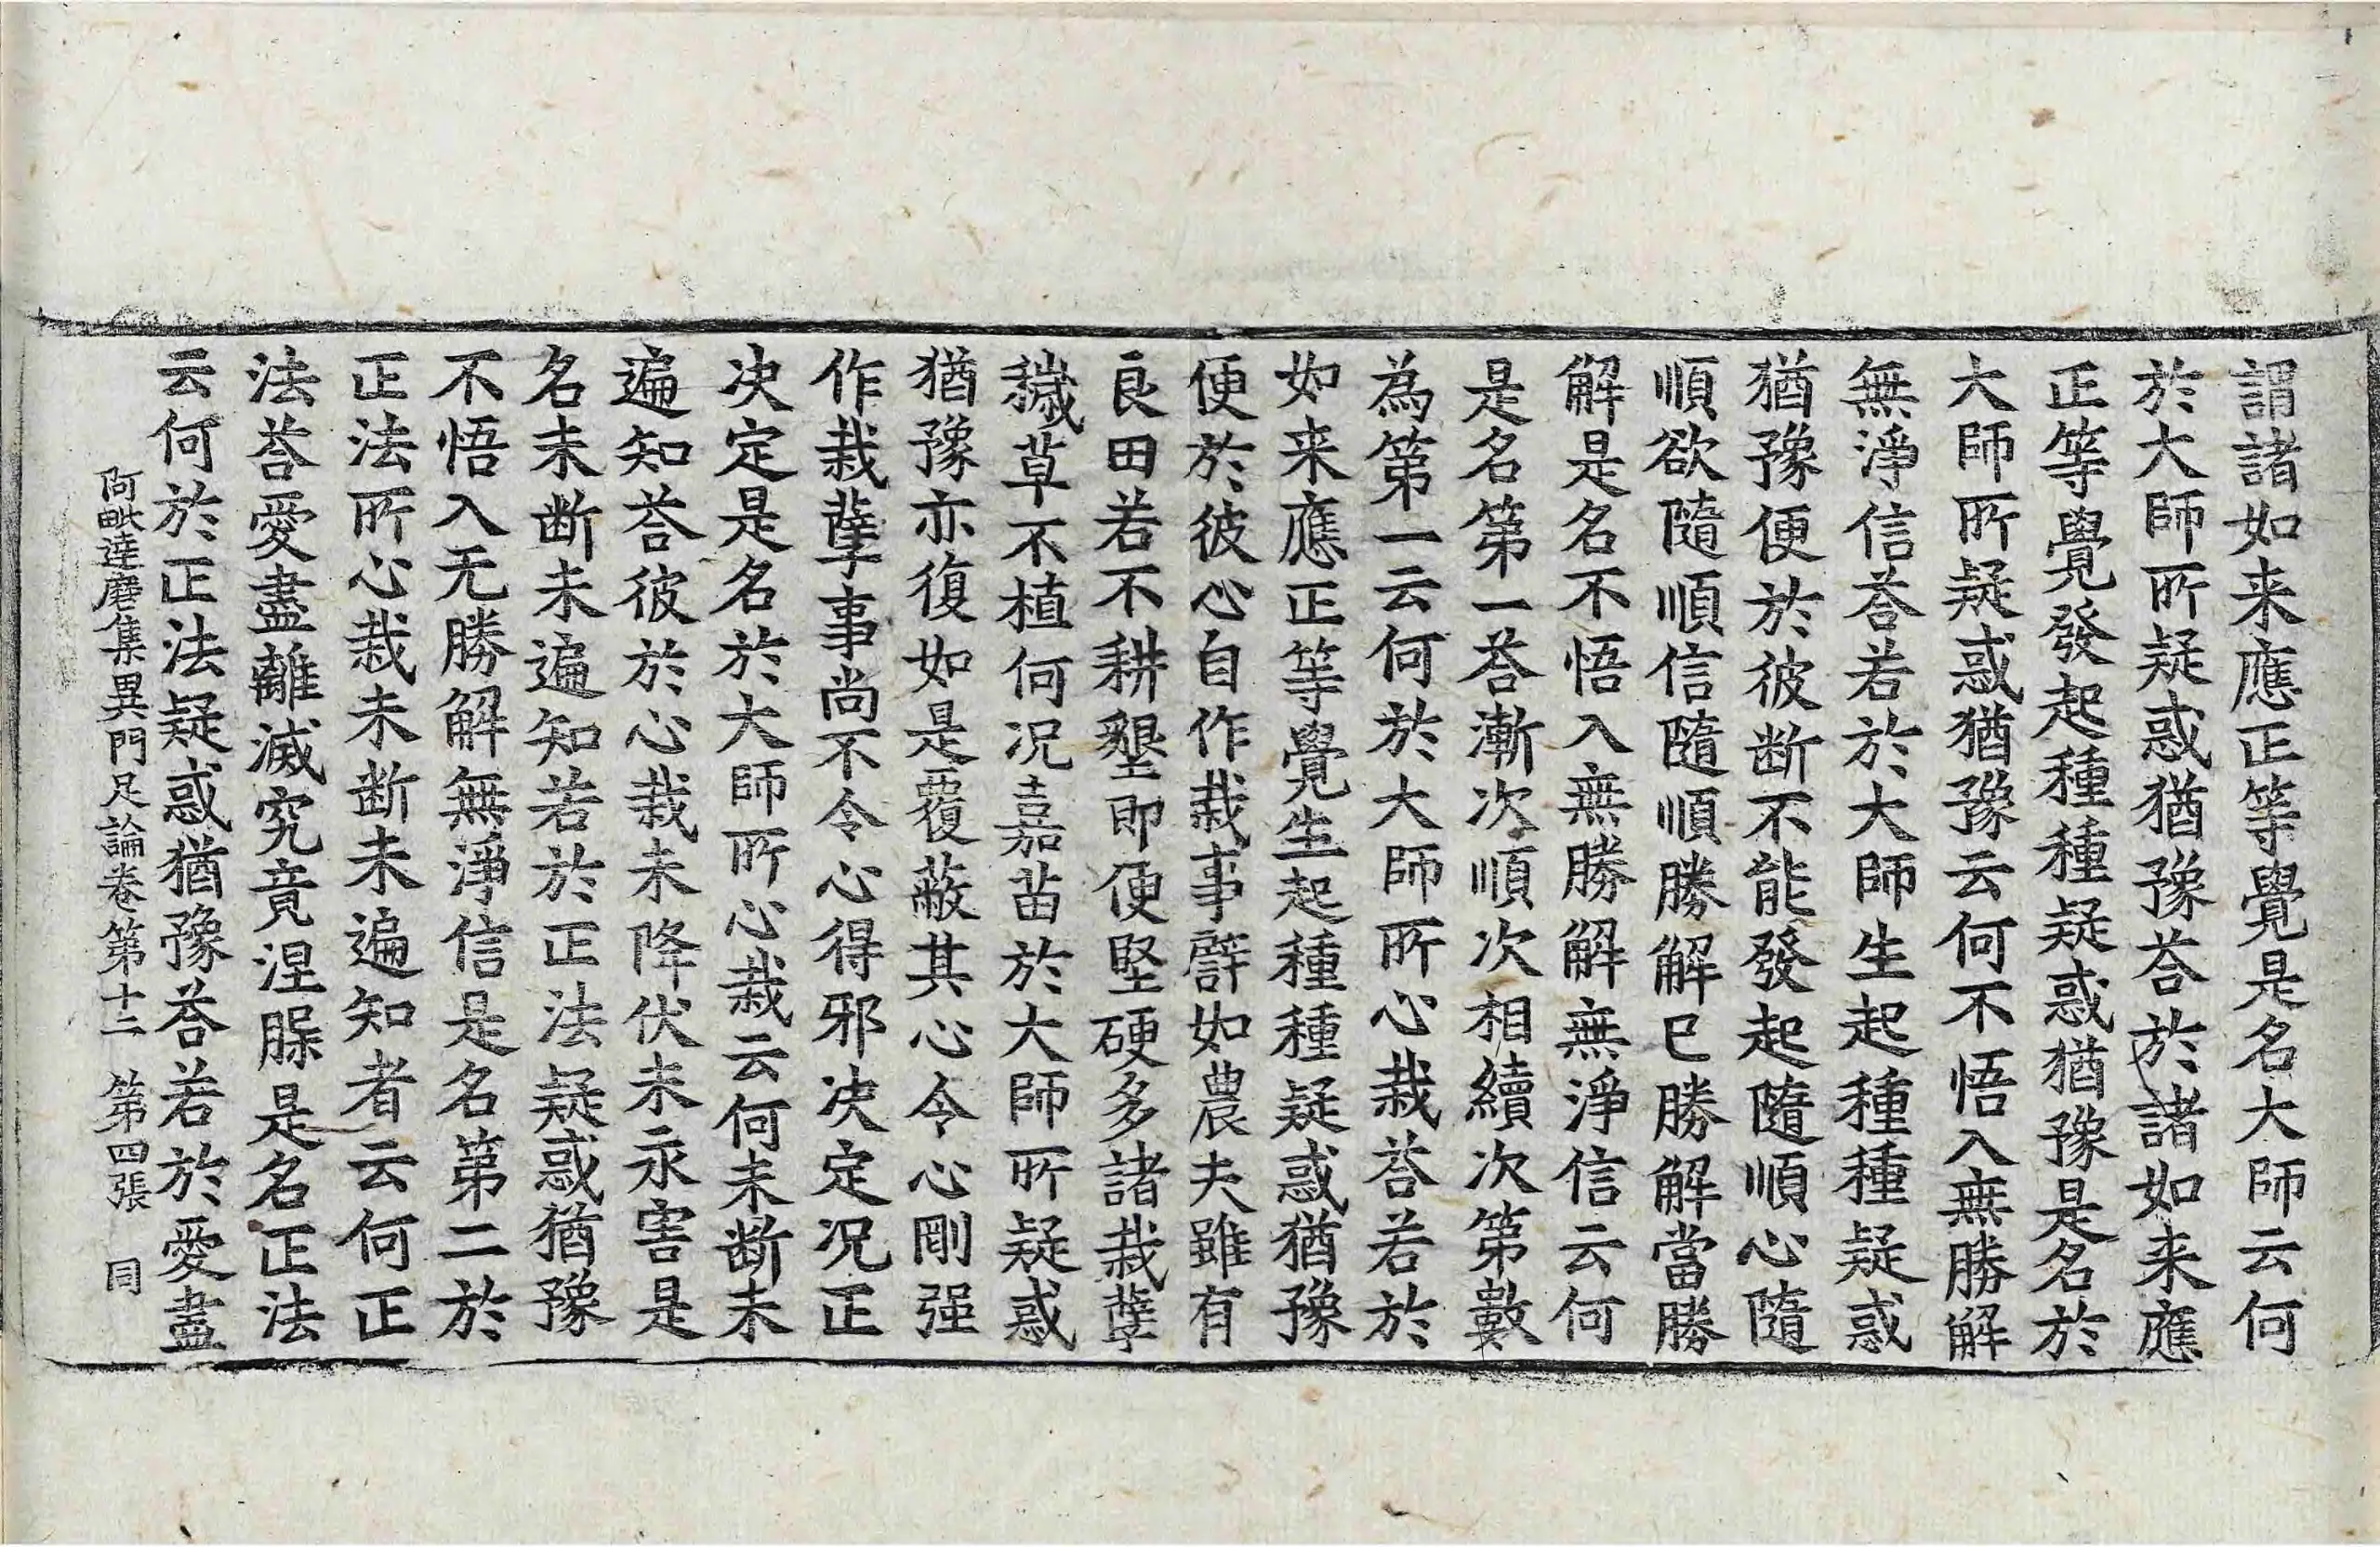 謂諸如来應正等覺是名大師云何
於大師所疑惑猶豫荅於諸如来應
正等覺發起種種疑惑猶豫是名於
大師所疑惑猶豫云何不悟入無勝解
無淨信荅若於大師生起種種疑惑
猶豫便於彼断不能發起隨順心隨
順欲隨順信隨順勝解解已勝解當勝
解是名不悟入無勝解無淨信云何
是名第一荅漸次順次相續次第數
為第一云何於大師所心栽荅若於
如来應正等覺生起種種疑惑猶豫
便於彼心自作栽事譬如農夫雖有
良田若不耕墾即便堅硬多諸栽孽
穢草不植何况嘉苗於大師所疑惑
猶豫亦復如是覆蔽其心令心剛强
作栽孽事尚不令心得邪决定况正
决定是名於大師所心栽云何未断未
遍知荅彼於心栽未降伏未永害是
名未断未遍知若於正法疑惑猶豫
不悟入无勝解無淨信是名第二於
正法所心栽未断未遍知者云何正
法荅愛盡離滅究竟涅槃是名正法
云何於正法疑惑猶豫荅若於愛盡
阿毗達磨集異門足論卷第十二 第四張 同